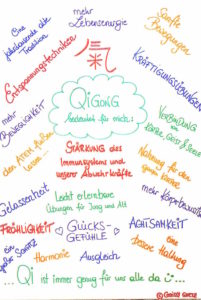 mehr
Lebensenergie
Sanfte
Bewegungen
Eine
Jahrtausende alte
Tradition
Entspannungstechniken
氣
KRÄFTIGUNGSÜBUNGEN
QIGONG
bedeutet für mich:
mehr
BEWEGLICHKEIT
VERBINDUNG
von
KÖRPER, GEIST & SEELE
den Alltag
lassen
STÄRKUNG des
Immunsystems und
unserer Abwehrkräfte
Nahrung für den
ganzen Körper
Gelassenheit
Leicht erlernbare
Übungen für Jung und Alt
mehr Körperbewusstsein
FRÖHLICHKEIT
GLÜCKS-
GEFÜHLE
ACHTSAMKEIT
ein
SCHATZ
Harmonie
Ausgleich
eine
bessere Haltung
... Qi ist immer genug für uns alle da ...